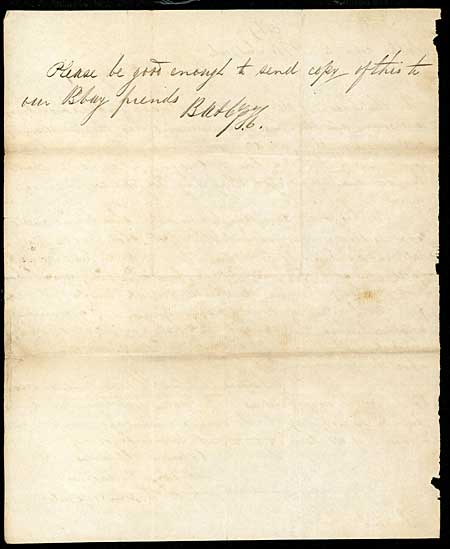 Please be good enough to send copy of this to
our Bbay friends